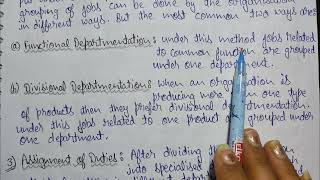 grouping of jobs can be done by the organisation
in different ways. But the most common two ways are
(a) Functional Departmentation: under this method jobs related
to common function are grouped
under one department.
(b) Divisional Departmentation: when an organisation is
producing more than one type
of products then they prefer divisional departmentation.
under this jobs related to one product are grouped under
one department.
3) Assignment of Duties: After dividing the
into specialised